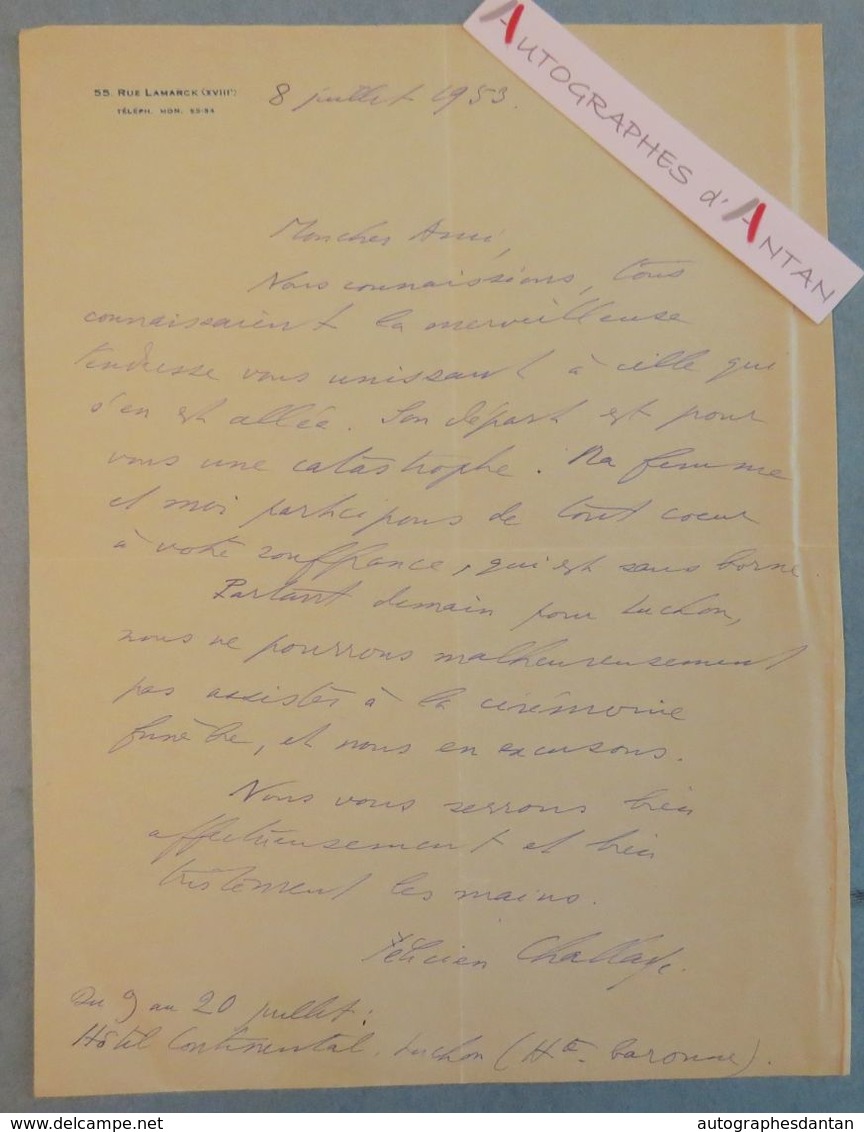 AUTOGRAPHES d'ANTAN
55. RUE LAMARCK (XVIIIe)
TÉLÉPH. MON. 52-54
8 juillet 1953.
Mon cher Ami,
Nous connaissions, tous
connaissaient la merveilleuse
tendresse vous unissant à celle qui
s'en est allée. Son départ est pour
vous une catastrophe. Ma femme
et moi participons de tout coeur
à votre souffrance, qui est sans borne.
Partant demain pour Luchon,
nous ne pourrons malheureusement
pas assister à la cérémonie
funèbre, et nous en excusons.
Nous vous serrons bien
affectueusement et bien
tristement les mains.
Félicien Challaye.
Du 9 au 20 juillet :
Hôtel Continental. Luchon (Hte. Garonne).
autographesdantan